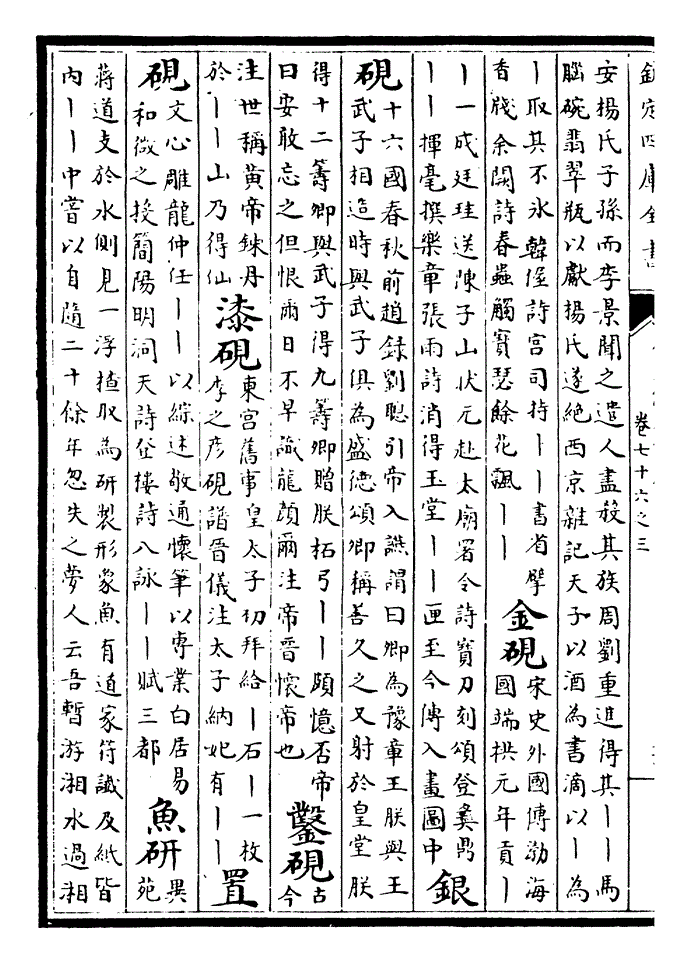 欽定四庫全書
卷七十六之三
安揚氏子孫而李景聞之遣人盡殺其族周劉重進得其丨丨馬
腦碗翡翠瓶以獻揚氏遂絶西京雜記天子以酒為書滴以丨為
丨取其不氷韓偓詩宫司持丨丨書省擘
香牋余闕詩春蟲觸寳瑟餘花飄丨丨
金硯
宋史外國傳渤海
國端拱元年貢丨
丨一成廷珪送陳子山狀元赴太廟署令詩寳刀刻頌登彞鼎
丨丨揮毫撰樂章張雨詩消得玉堂丨丨匣至今傳入畫圖中
銀
硯
十六國春秋前趙録劉聰引帝入讌謂曰卿為豫章王朕與王
武子相造時與武子俱為盛德頌卿稱善久之又射於皇堂朕
得十二籌卿與武子得九籌卿贈朕柘弓丨丨頗憶否帝
曰安敢忘之但恨爾日不早識龍顔爾注帝晉懷帝也
鑿硯
古
今
注世稱黃帝鍊丹
於丨丨山乃得仙
漆硯
東宫舊事皇太子初拜給丨石丨一枚
李之彦硯譜晉儀注太子納妃有丨丨
置
硯
文心雕龍仲任丨丨以綜述敬通懷筆以專業白居易
和微之授簡陽明洞天詩登樓詩八詠丨丨賦三都
魚研
異
苑
蔣道支於水側見一浮楂取為研製形象魚有道家符讖及紙皆
内丨丨中嘗以自隨二十餘年忽失之夢人云吾暫游湘水過湘